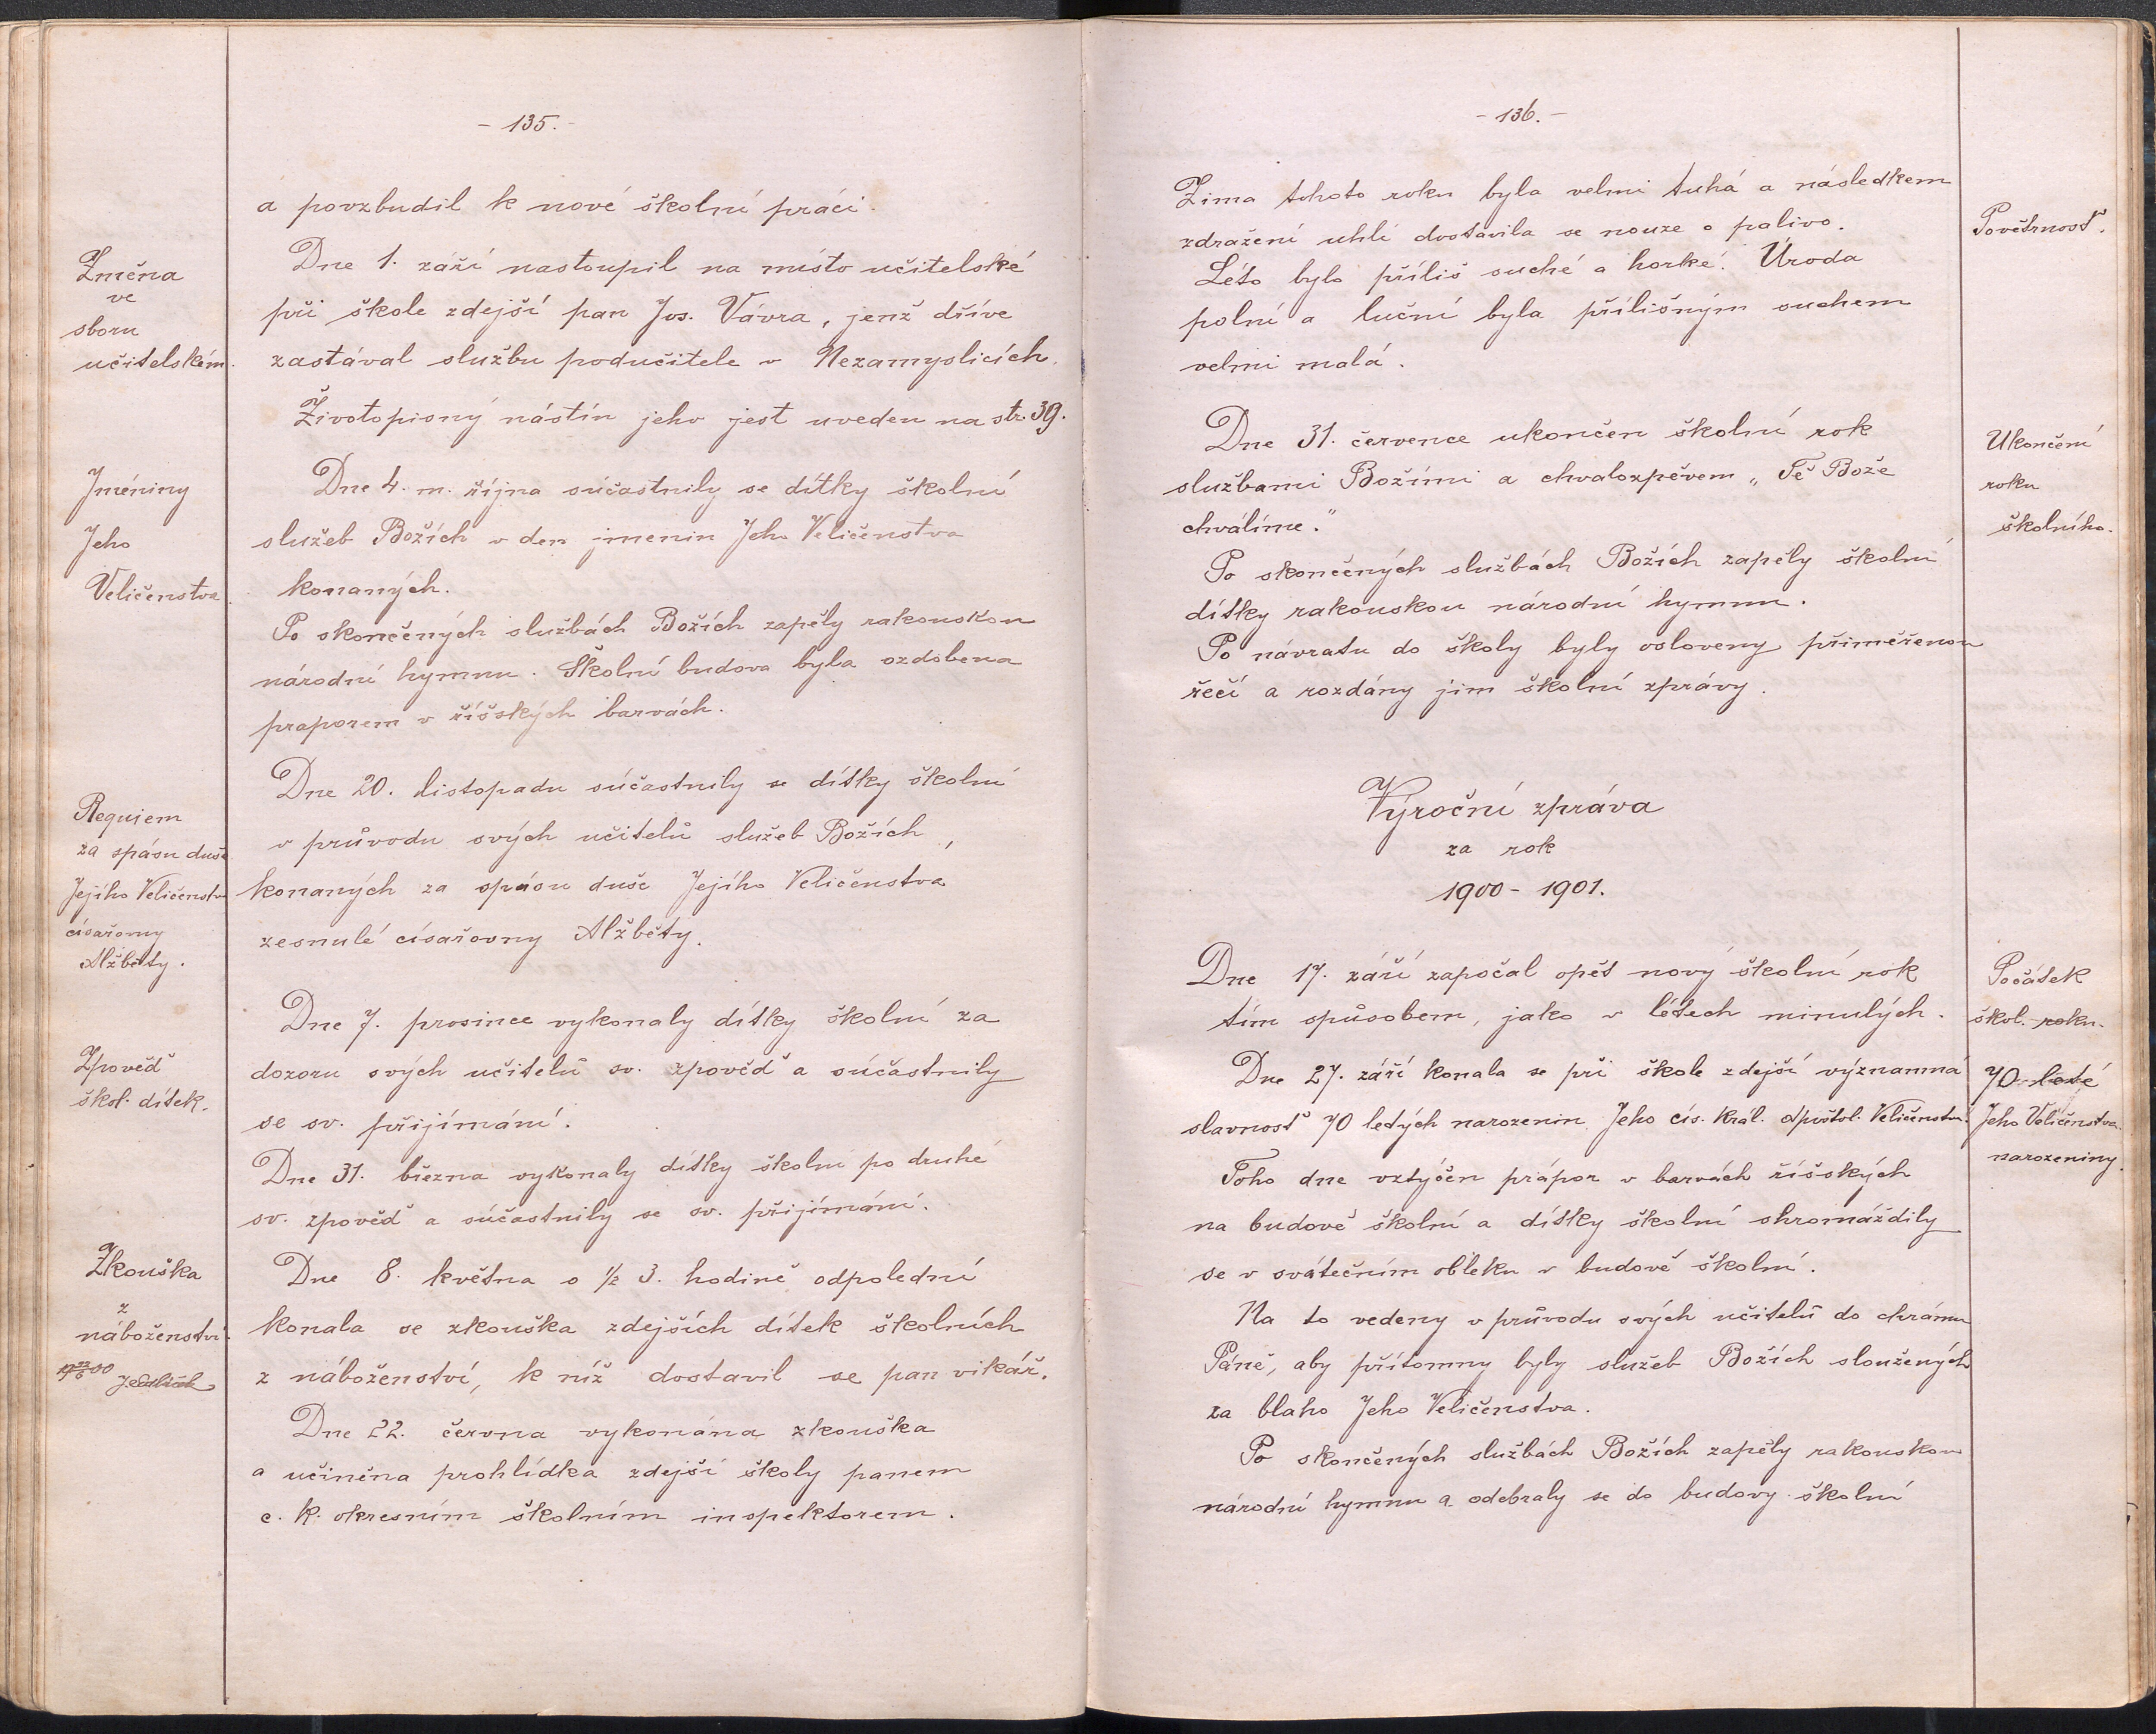 - 135. -
a povzbudil k nové školní práci.
Změna
ve
sboru
učitelském.
Dne 1. září nastoupil na místo učitelské
při škole zdejší pan Jos. Vávra, jenž dříve
zastával službu podučitele v Nezamyslicích.
Životopisný nástín jeho jest uveden na str. 39.
Jmeniny
Jeho
Veličenstva.
Dne 4. m. října súčastnily se dítky školní
služeb Božích v den jmenin Jeho Veličenstva
konaných.
Po skončených službách Božích zapěly rakouskou
národní hymnu. Školní budova byla ozdobena
praporem v říšských barvách.
Requiem
za spásu duše
Jejího Veličenstva
císařovny
Alžběty.
Dne 20. listopadu súčastnily se dítky školní
v průvodu svých učitelů služeb Božích,
konaných za spásu duše Jejího Veličenstva
zesnulé císařovny Alžběty.
Zpověď
škol. dítek.
Dne 7. prosince vykonaly dítky školní za
dozoru svých učitelů sv. zpověď a súčastnily
se sv. přijímání.
Dne 31. března vykonaly dítky školní po druhé
sv. zpověď a súčastnily se sv. přijímání.
Zkouška
z
náboženství.
Dne 8. května o 1/2 3. hodině odpolední
konala se zkouška zdejších dítek školních
z náboženství, k níž dostavil se pan vikář.
Dne 22. června vykonána zkouška
a učiněna prohlídka zdejší školy panem
c. k. okresním školním inspektorem.
- 136. -
Zima tohoto roku byla velmi tuhá a následkem
zdražení uhlí dostavila se nouze o palivo.
Léto bylo příliš suché a horké. Úroda
polní a luční byla přílišným suchem
velmi malá.
Povětrnosť.
Dne 31. července ukončen školní rok
službami Božími a chvalozpěvem „Tě Bože
chválíme."
Po skončených službách Božích zapěly školní
dítky rakouskou národní hymnu.
Po návratu do školy byly osloveny přiměřenou
řečí a rozdány jim školní zprávy.
Ukončení
roku
školního.
Výroční zpráva
za rok
1900 - 1901.
Dne 17. září započal opět nový školní rok
tím spůsobem, jako v létech minulých.
Počátek
škol. roku.
Dne 27. září konala se při škole zdejší významná
slavnosť 70 letých narozenin Jeho cís. král. Apoštol. Veličenstva.
70-leté
Jeho Veličenstva
narozeniny.
Toho dne vztýčen prápor v barvách říšských
na budově školní a dítky školní shromáždily
se v svátečním obleku v budově školní.
Na to vedeny v průvodu svých učitelů do chrámu
Páně, aby přítomny byly služeb Božích sloužených
za blaho Jeho Veličenstva.
Po skončených službách Božích zapěly rakouskou
národní hymnu a odebraly se do budovy školní